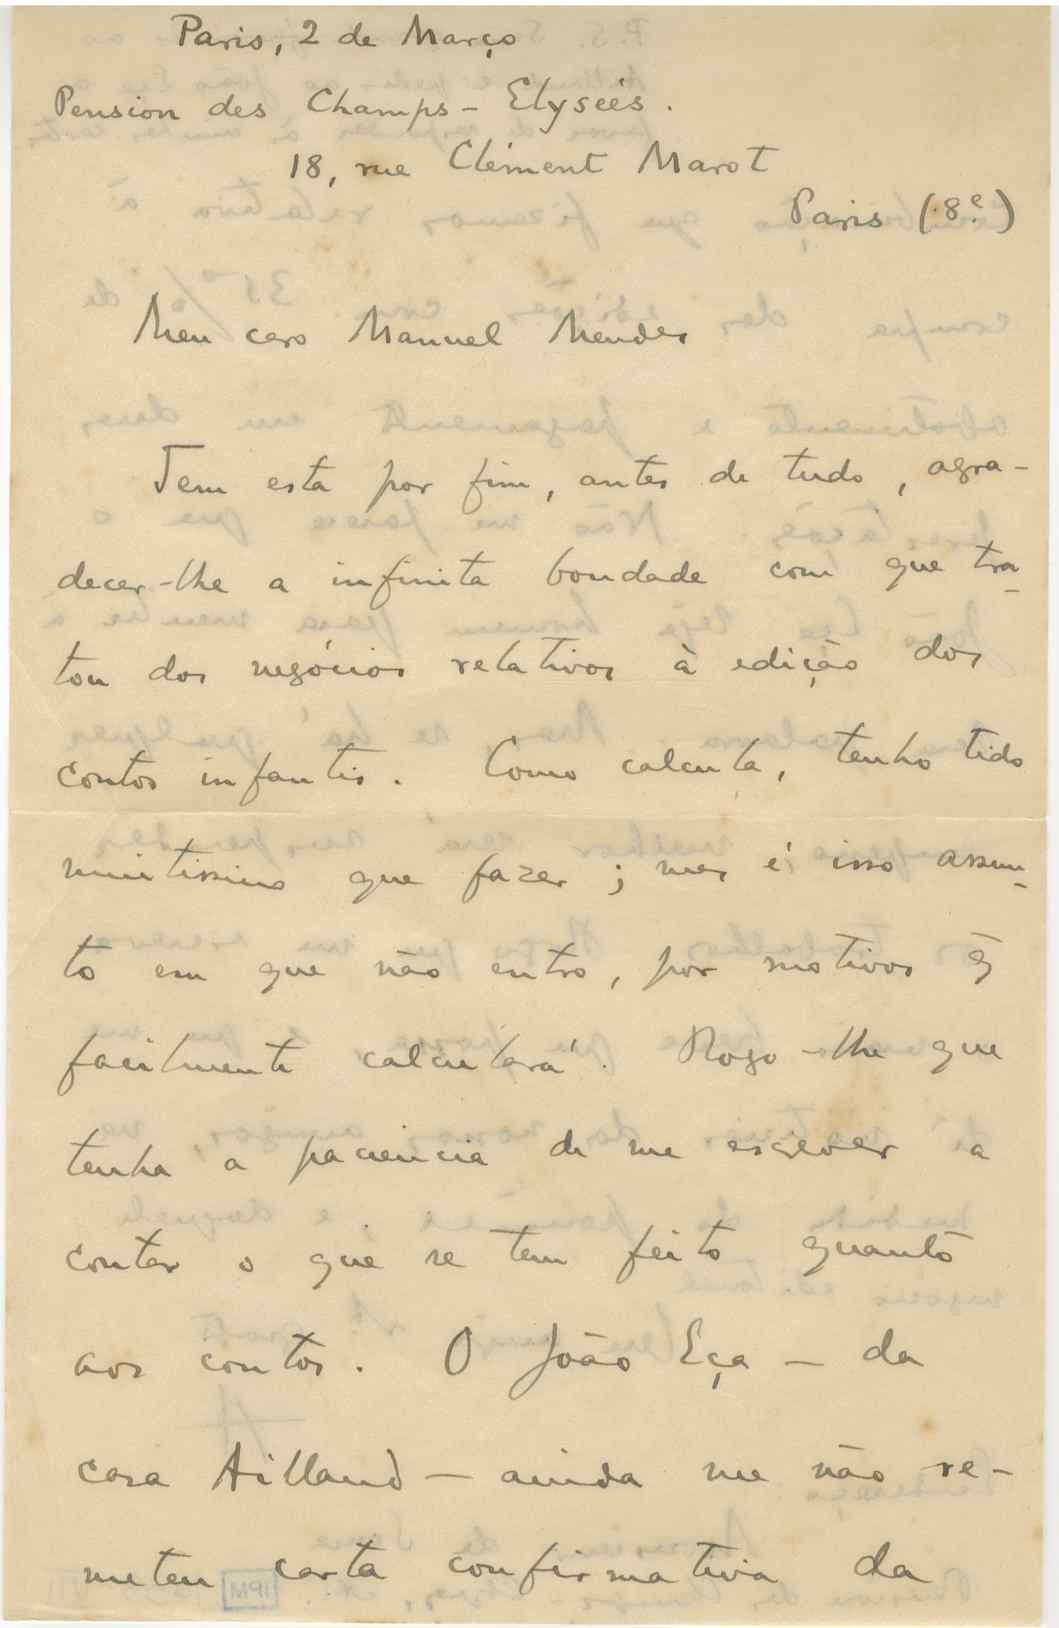 Paris, 2 de Março
Pension des Champs-Elyseés.
18, rue Clément Marot
Paris (8e)
Meu caro Manuel Mendes
Tem esta por fim, antes de tudo, agra-
decer-lhe a infinita bondade com que tra-
tou dos negócios relativos à edição dos
contos infantis. Como calcula, tenho tido
muitissimo que fazer; mas é isso assun-
to em que não entro, por motivos q̃
facilmente calculará. Rogo-lhe que
tenha a paciencia de me escrever a
contar o que se tem feito quanto
aos contos. O João Eça — da
casa Aillaud — ainda me não re-
meteu carta confirmativa da
IPM